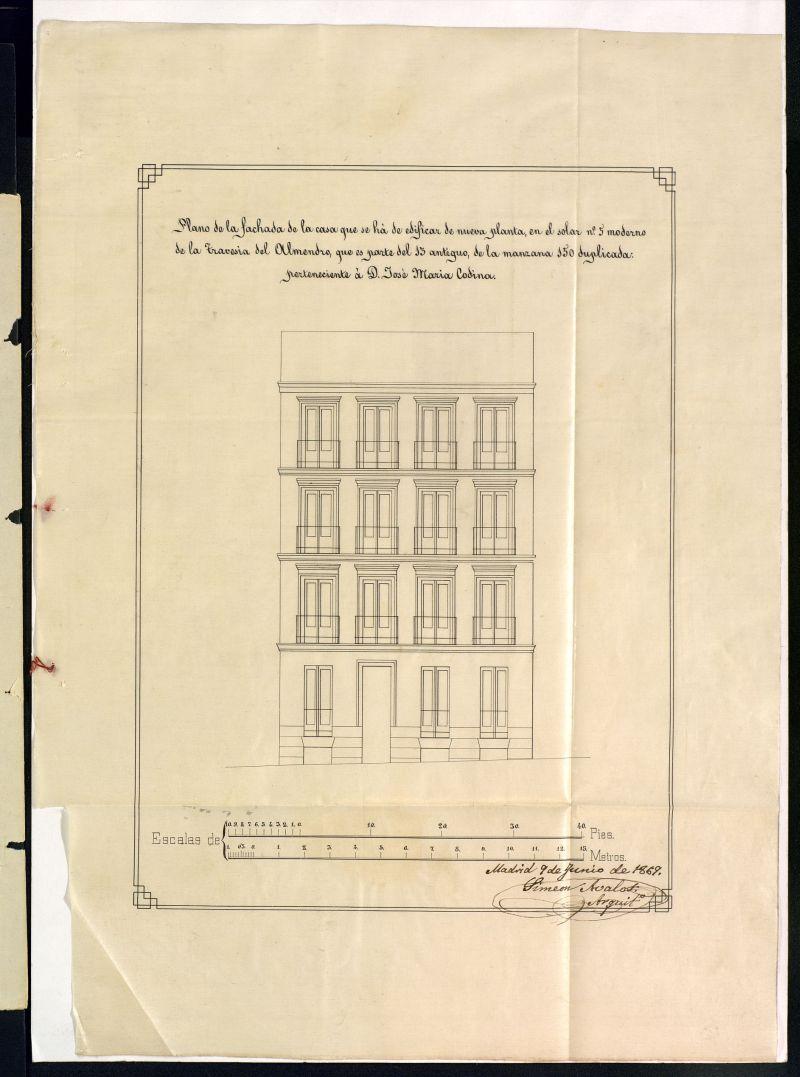 Plano de la fachada de la casa que se há de edificar de nueva planta, en el solar nº 5 moderno
de la Travesia del Almendro, que es parte del 13 antiguo, de la manzana 150 duplicada:
perteneciente á D. José Maria Cobina.
Escalas de
10. 9. 8. 7. 6. 5. 4. 3. 2. 1. 0. 10. 20. 30. 40. Pies.
1. 05. 0. 1. 2. 3. 4. 5. 6. 7. 8. 9. 10. 11. 12. 13. Metros.
Madrid 9 de Junio de 1869.
Simeon Avalos
Arquitº